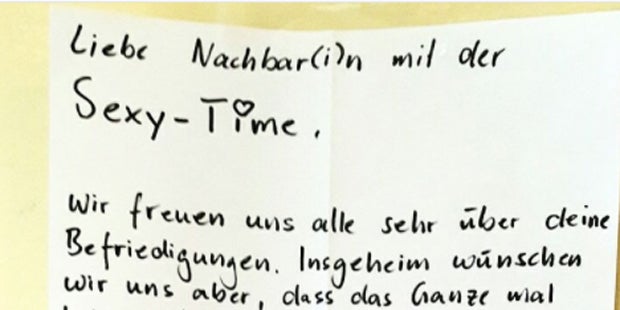 Liebe Nachbar(i)n mit der
Sexy-Time.
Wir freuen uns alle sehr über deine
Befriedigungen. Insgeheim wünschen
wir uns aber, dass das Ganze mal